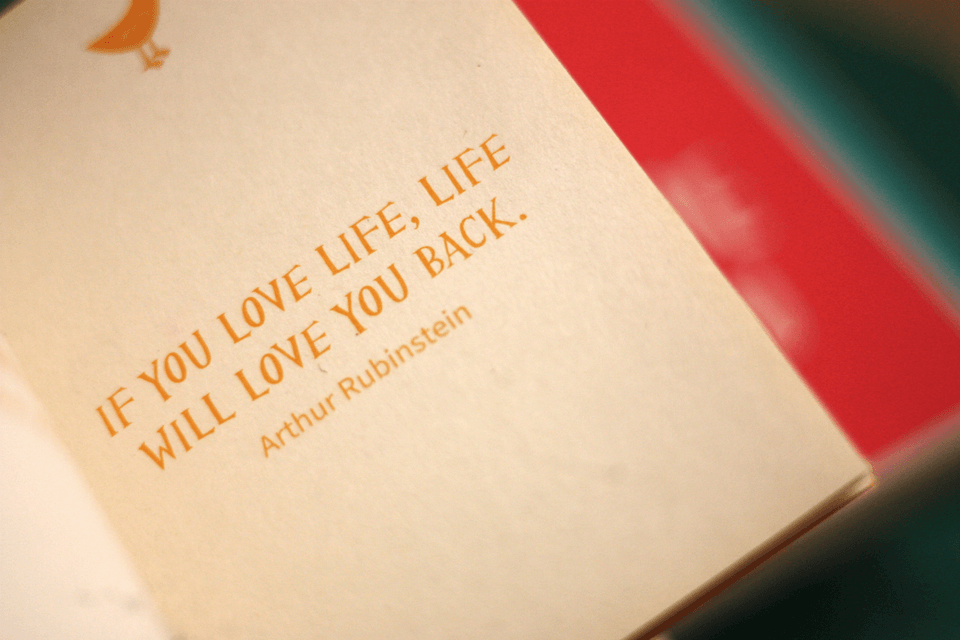 IF YOU LOVE LIFE, LIFE
WILL LOVE YOU BACK.
Arthur Rubinstein